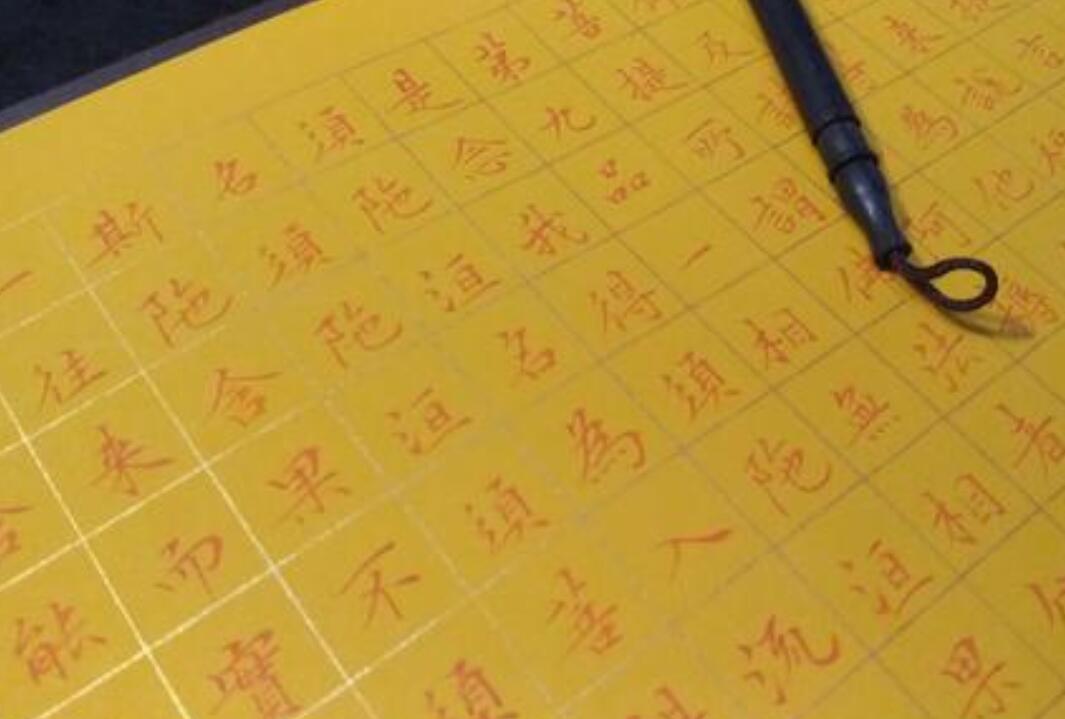 來說
為他
及諸
菩提所謂佛法者
第九品一相無相
是念我得須陀洹果
須陀洹名為入流
名須陀洹須菩
斯陀含果不須
一往來而實
含能